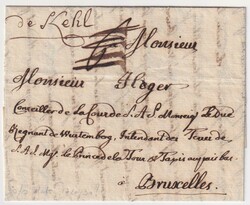 de Kehl
Monsieur
Monsieur Heger
Conseiller de la Cour de S.A.S. Monseigr le Duc
Regnant de Wurtemberg, Intendant des Terres de
S.A. Msgr. le Prince de la Tour & Taxis au païs bas
à
Bruxelles.